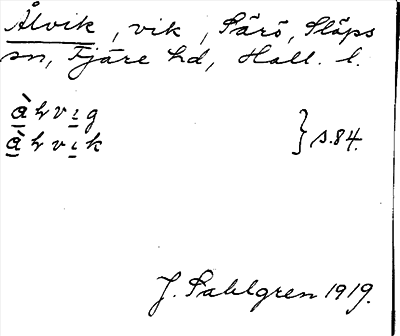 Ålvik, vik, Särö, Släps
sn, Fjäre hd, Hall. l.
àlvig
àlvik } s. 84.
J. Sahlgren 1919.